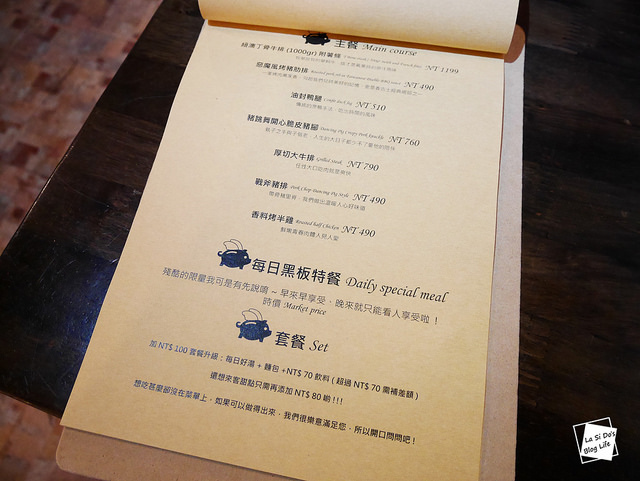 主餐 Main course
紐澳丁骨牛排 (1000gr) 附薯條 NT 1199
惡魔風烤豬肋排 NT 490
油封鴨腿 Confit duck leg NT 510
豬跳舞開心脆皮豬腳 Dancing Pig Crispy Pork knuckle NT 760
厚切大牛排 Grilled steak NT 790
任性大口吃肉就是爽快
戰斧豬排 Pork Chop Dancing Pig Style NT 490
香料烤半雞 Roasted half Chicken NT 490
每日黑板特餐 Daily special meal
殘酷的限量我可是有先說唷 ~ 早來早享受、晚來就只能看人享受啦！
時價 Market price
套餐 Set
加 NT$ 100 套餐升級：每日好湯 + 麵包 +NT$ 70 飲料 ( 超過 NT$ 70 需補差額 )
還想來客甜點只需再添加 NT$ 80 喲 ! ! !
想吃甚麼卻沒在菜單上，如果可以做得出來，我們很樂意滿足您，所以開口問問吧！
La Si Do's
Blog Life